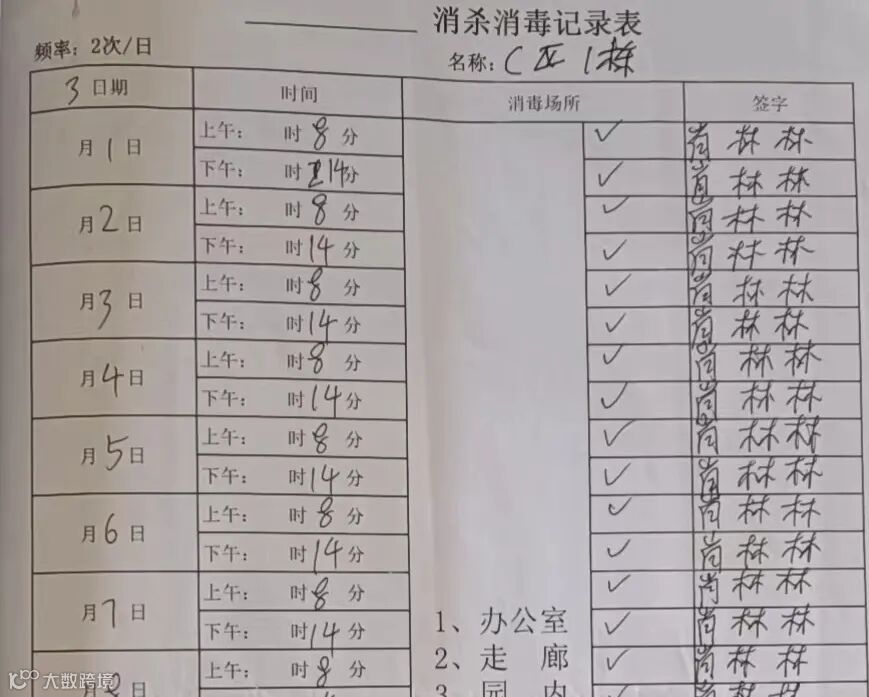 消杀消毒记录表
频率：2次/日
名称：C区1栋
3日期 时间 消毒场所 签字
月1日 上午： 时8分 ✓ 肖林林
下午： 时14分 ✓ 肖林林
月2日 上午： 时8分 ✓ 肖林林
下午： 时14分 ✓ 肖林林
月3日 上午： 时8分 ✓ 肖林林
下午： 时14分 ✓ 肖林林
月4日 上午： 时8分 ✓ 肖林林
下午： 时14分 ✓ 肖林林
月5日 上午： 时8分 ✓ 肖林林
下午： 时14分 ✓ 肖林林
月6日 上午： 时8分 ✓ 肖林林
下午： 时14分 ✓ 肖林林
月7日 上午： 时8分 ✓ 肖林林
下午： 时14分 1、办公室 ✓ 肖林林
上午： 时8分 2、走 廊 ✓ 肖林林
3 园 内
大数跨境